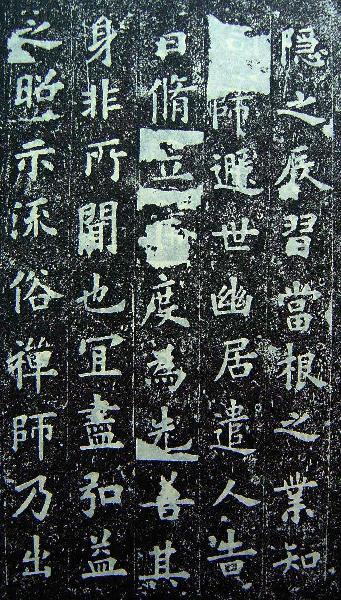 隐之辰習當根之業知
師遯世幽居遣人告
曰脩立度為先善其
身非所聞也宜盡弘益
之昭示流俗禪師乃出